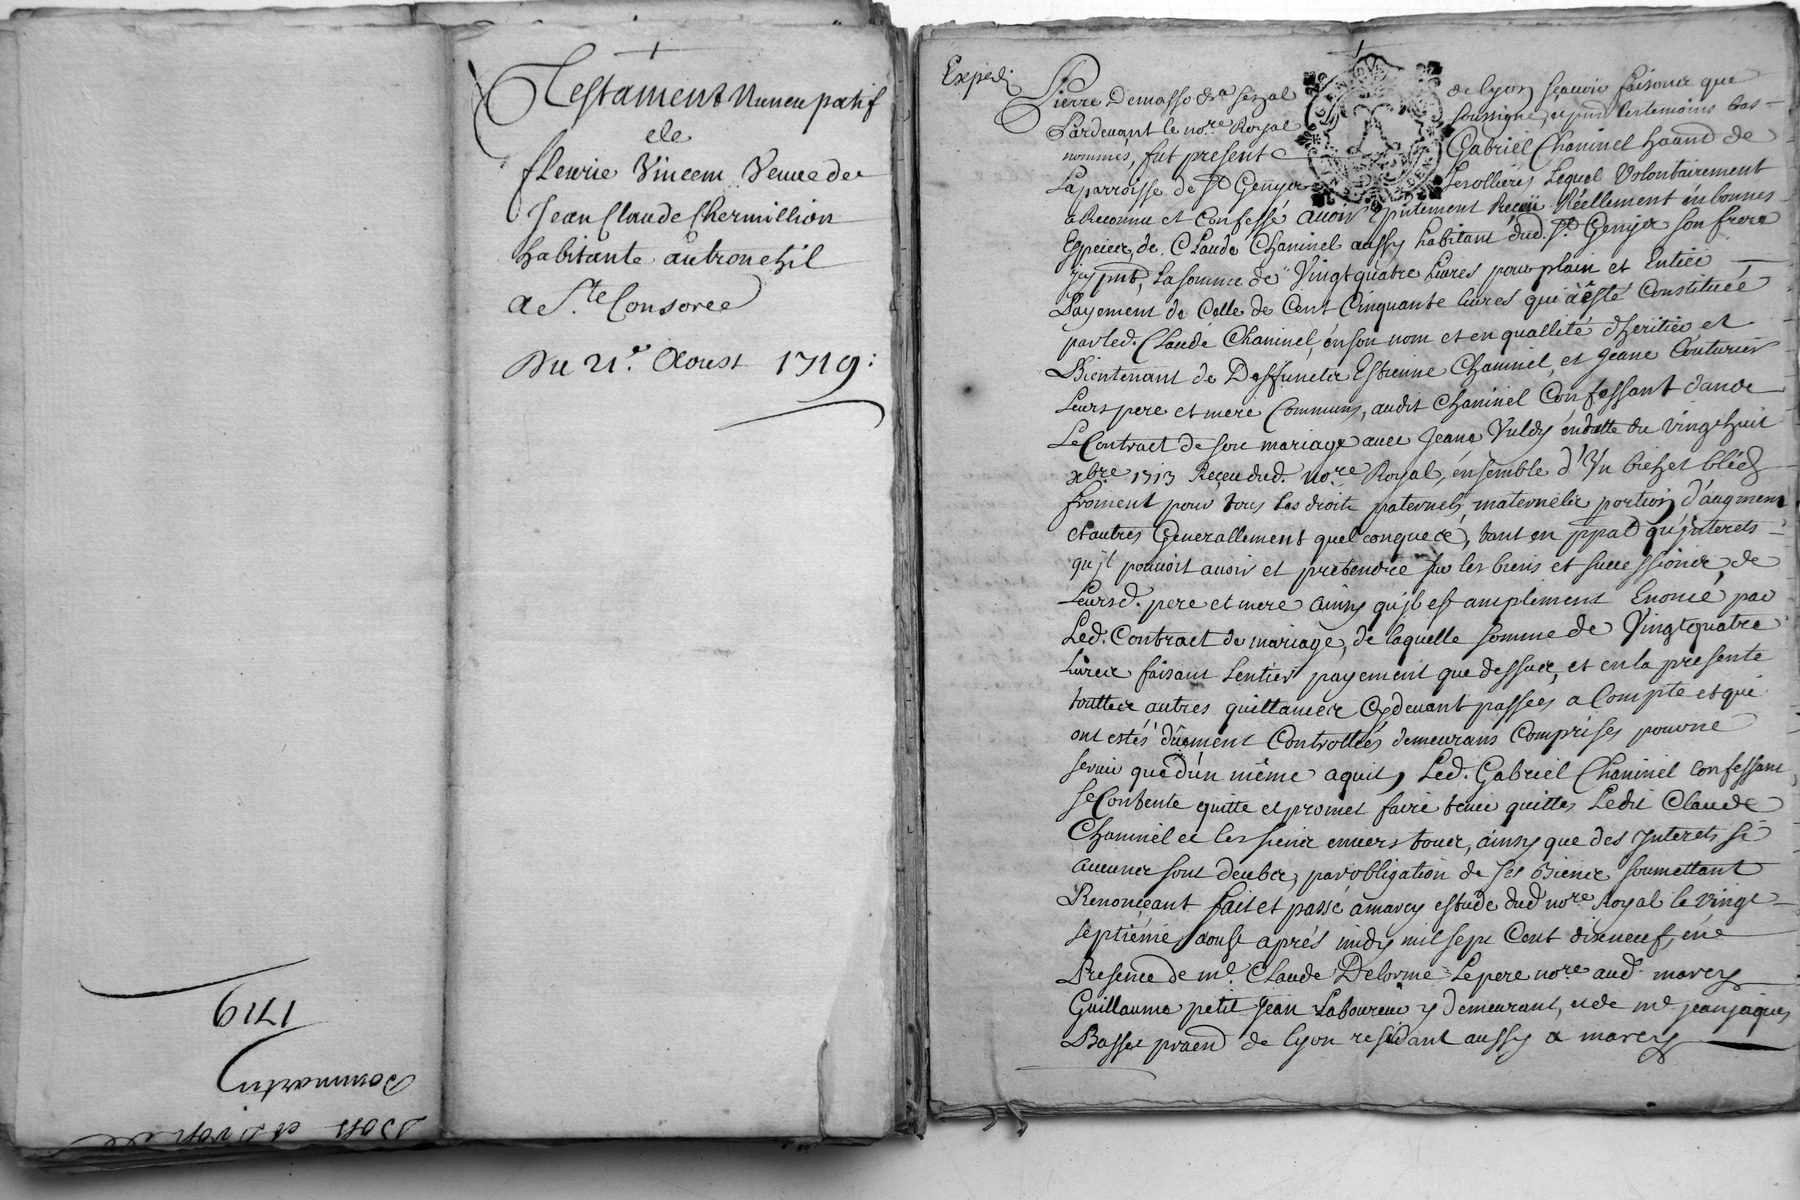 Testament Nuncupatif
de
fleurie Vincem Veuue de
Jean Claude Chermillion
habitante au tronchil
a Ste. Consorce
Du 21e. Aoust 1719:
1719
Dommartin
Exped.
Pierre Demasso
de Lyon scauoir faisons que
Pardeuant le nore. Royal
soussigné, et les temoins bas-
nommés, fut present
Gabriel Chaninel de
la parroisse de St. Genys
Lesolliéres Lequel Volontairement
a Reconnu et Confessé auoir Réellement en bonnes
Especes, de Claude Chaninel aussy habitant dud. St. Genys son frere
jcy pnt, La somme de Vingtquatre liures pour plain et Entier
Payement de Celle de Cent Cinquante liures qui a esté Constituée
par led. Claude Chaninel, en son nom et en quallité d'heritier et
Bientenant de Deffuncts Estienne Chaninel, et Jeane Couturier
Leurs pere et mere Communs, audit Chaninel Confessant dans
Le Contract de son mariage auec Jeane Vuldy en datte du vingthuit
xbre 1713 Receu dud. nore Royal, ensemble d'Un bichet bléd
froment pour tous les droits paternels, maternels portion d'augment
et autres Generallement quelconques, tant en ppal qu'jnterets
qu'jl pouuoit auoir et pretendre sur les biens et successions de
Leursd. pere et mere ainsy qu'jl est amplement Enoncé par
Led. Contract de mariage, de laquelle somme de Vingtquatre
Liures faisant lentier payement que dessus, et en la presente
touttes autres quittances Cydeuant passées a Compte et qui
ont estés dûement Controllées demeurans Comprises pour ne
seruir que d'un même aquit, Led. Gabriel Chaninel Confessant
se Contente quitte et promet faire tenir quittes Ledit Claude
Chaninel et les siens enuers tous, ainsy que des Jnterets si
aucuns sont deubs, par obligation de ses Biens soumettant
Renonçeant fait et passé a marcy estude dud nore Royal le vingt
septiéme aoust aprés midy mil sept Cent dixneuf, en
Presence de me. Claude Delorme Le pere nore aud. marcy
Guillaume petit Jean Laboureur y demeurant, et de me jeanjaques
Basset de Lyon residant aussy a marcy